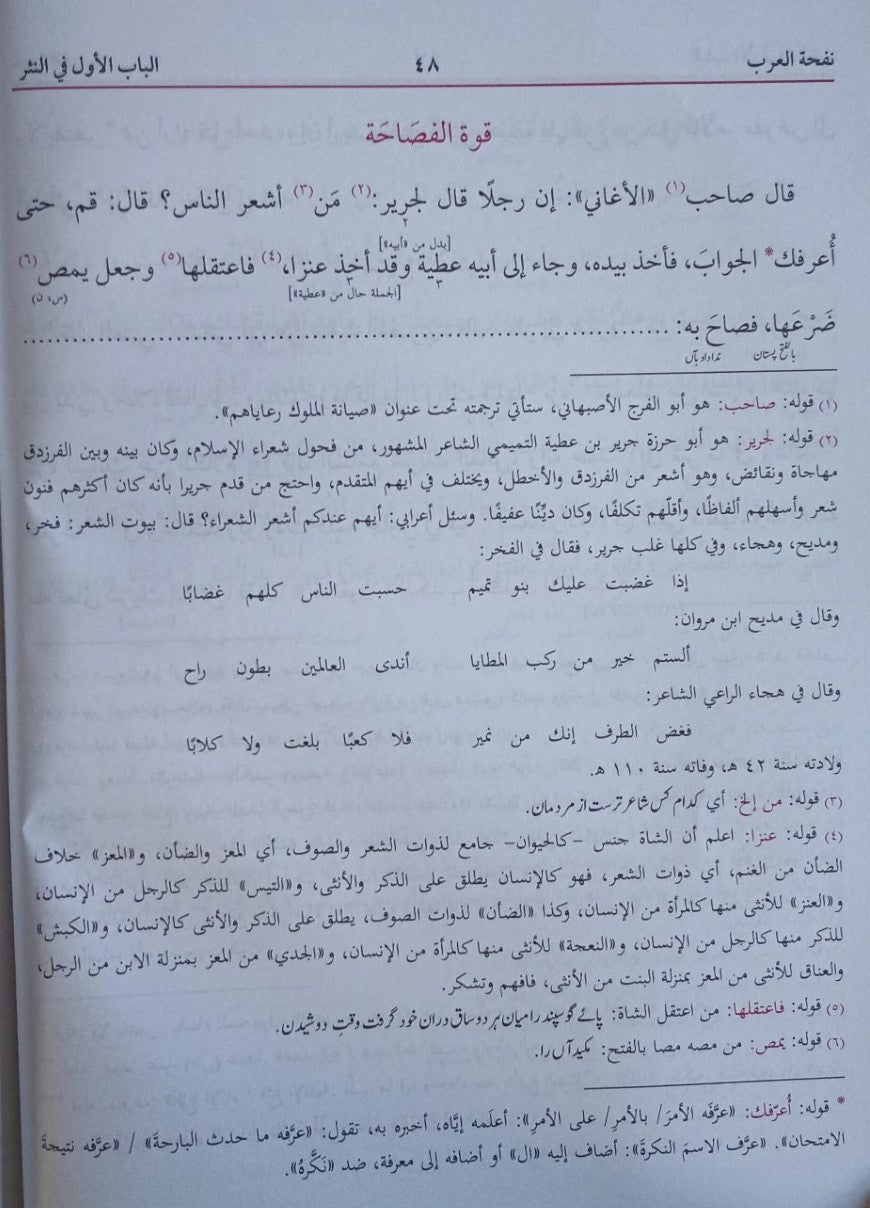 نفحة العرب ٤٨ الباب الأول في النثر
قوة الفصَاحَة
قال صاحب(١) «الأغاني»: إن رجلًا قال لجرير:(٢) مَن(٣) أشعر الناس؟ قال: قم، حتى
[بدل من «أبيه»]
أُعرفك* الجوابَ، فأخذ بيده، وجاء إلى أبيه عطية وقد أخذ عنزا،(٤) فاعتقلها(٥) وجعل يمص(٦)
[الجملة حال من «عطية»] (س، ن)
ضَرْعَها، فصاحَ به: ................................................................
بالفتح پستان نداداد بآں
(١) قوله: صاحب: هو أبو الفرج الأصبهاني، ستأتي ترجمته تحت عنوان «صيانة الملوك رعاياهم».
(٢) قوله: لجرير: هو أبو حرزة جرير بن عطية التميمي الشاعر المشهور، من فحول شعراء الإسلام، وكان بينه وبين الفرزدق
مهاجاة ونقائض، وهو أشعر من الفرزدق والأخطل، ويختلف في أيهم المتقدم، واحتج من قدم جريرا بأنه كان أكثرهم فنون
شعر وأسهلهم ألفاظًا، وأقلّهم تكلفًا، وكان ديِّنًا عفيفًا. وسئل أعرابي: أيهم عندكم أشعر الشعراء؟ قال: بيوت الشعر: فخر،
ومديح، وهجاء، وفي كلها غلب جرير، فقال في الفخر:
إذا غضبت عليك بنو تميم حسبت الناس كلهم غضابًا
وقال في مديح ابن مروان:
ألستم خير من ركب المطايا أندى العالمين بطون راح
وقال في هجاء الراعي الشاعر:
فغض الطرف إنك من نمير فلا كعبًا بلغت ولا كلابًا
ولادته سنة ٤٢ هـ، وفاته سنة ١١٠ هـ.
(٣) قوله: من إلخ: أي کدام کس شاعر ترست از مردمان.
(٤) قوله: عنزا: اعلم أن الشاة جنس –كالحيوان– جامع لذوات الشعر والصوف، أي المعز والضأن، و«المعز» خلاف
الضأن من الغنم، أي ذوات الشعر، فهو كالإنسان يطلق على الذكر والأنثى، و«التيس» للذكر كالرجل من الإنسان،
و«العنز» للأنثى منها كالمرأة من الإنسان، وكذا «الضأن» لذوات الصوف، يطلق على الذكر والأنثى كالإنسان، و«الكبش»
للذكر منها كالرجل من الإنسان، و«النعجة» للأنثى منها كالمرأة من الإنسان، و«الجدي» من المعز بمنزلة الابن من الرجل،
والعناق للأنثى من المعز بمنزلة البنت من الأنثى، فافهم وتشكر.
(٥) قوله: فاعتقلها: من اعتقل الشاة: پائے گوسپند را میان ہر دو ساق دران خود گرفت وقتِ دوشیدن.
(٦) قوله: يمص: من مصه مصا بالفتح: مکید آں را.
* قوله: أُعرّفك: «عرَّفه الأمرَ/ بالأمرِ/ على الأمرِ»: أعلَمه إيَّاه، أخبره به، تقول: «عرَّفه ما حدث البارحةَ» / «عرَّفه نتيجةَ
الامتحان». «عرَّف الاسمَ النكرةَ»: أضاف إليه «ال» أو أضافه إلى معرفة، ضد «نَكَّرهُ».